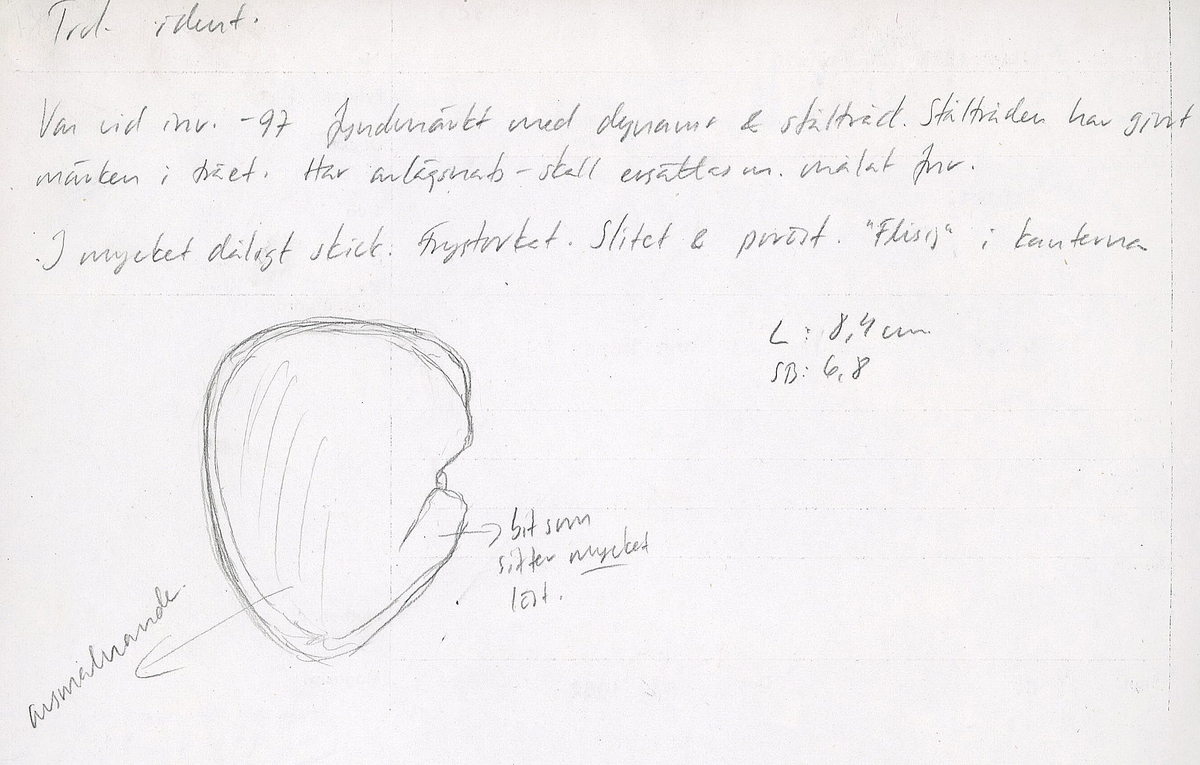 Trol. ident.
Var vid inv. -97 fyndmärkt med dynamo & ståltråd. Ståltråden har givit
märken i träet. Har avlägsnats - skall ersättas m. målat fnr.
I mycket dåligt skick. Frystorkat. Slitet & poröst. "Flisig" i kanterna
L: 8,4 cm.
SB: 6,8
bit som
sitter mycket
löst.
avsmalnande.